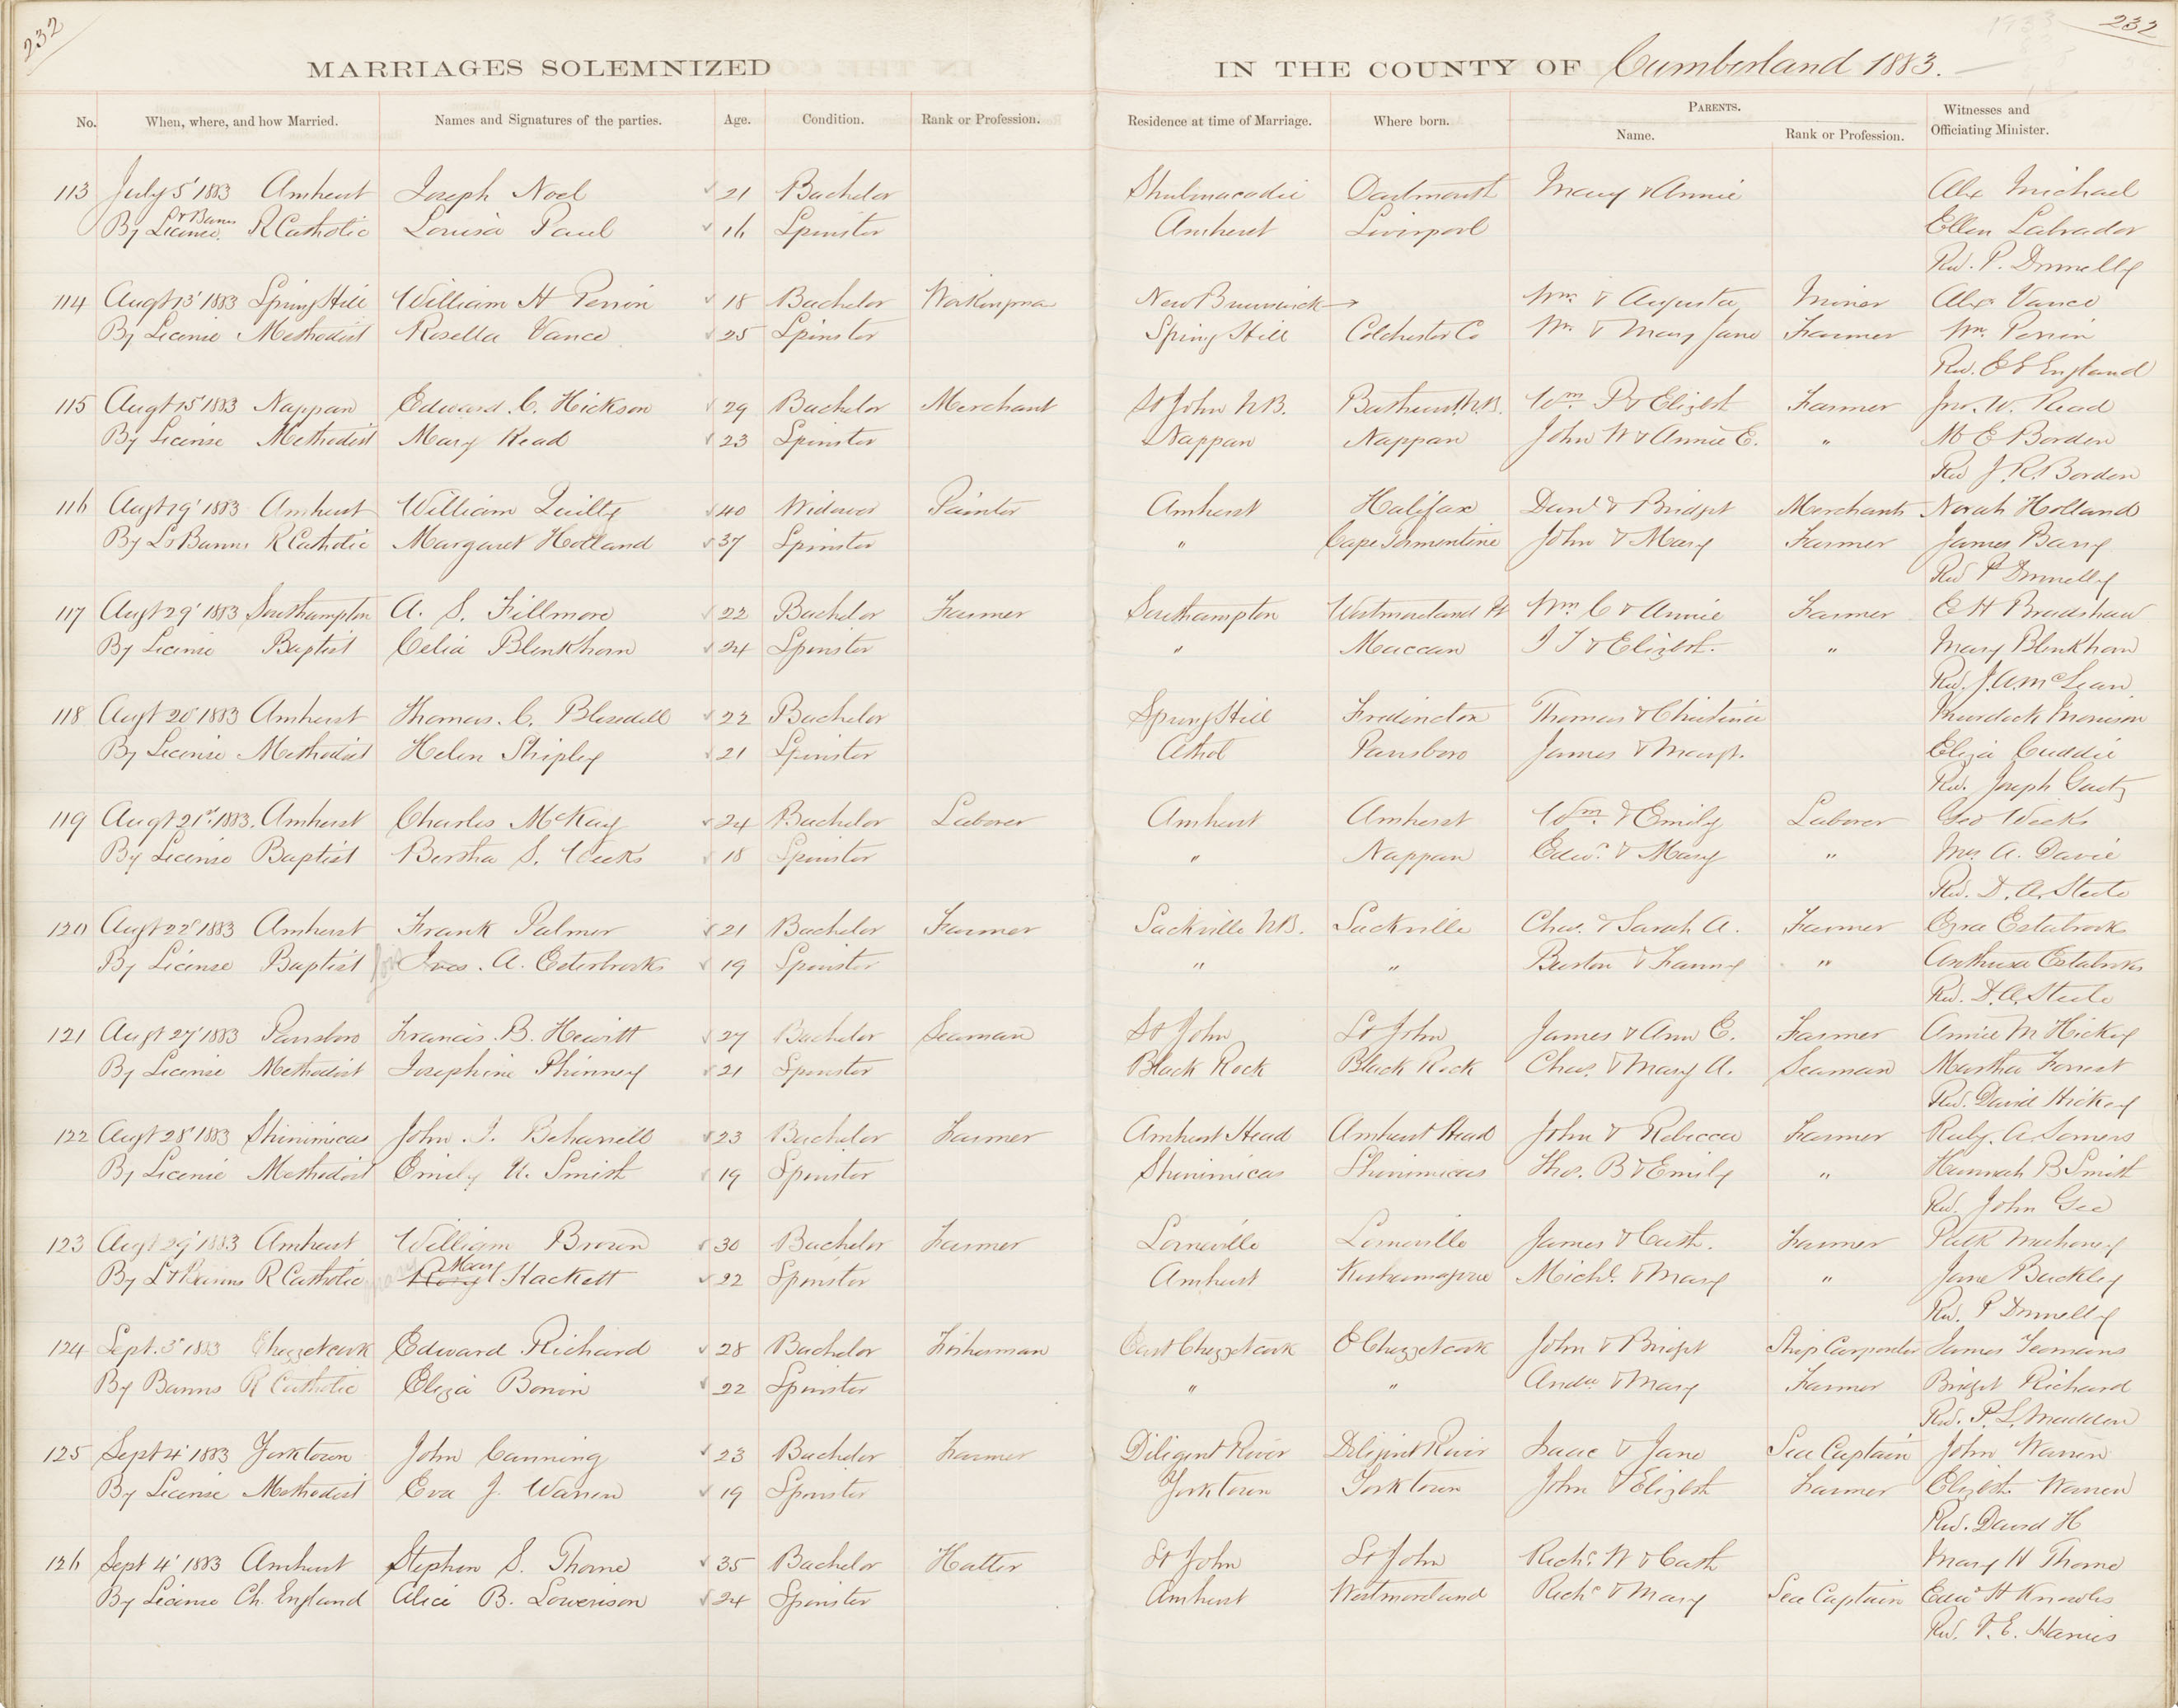 232
232
MARRIAGES SOLEMNIZED IN THE COUNTY OF Cumberland 1883.
PARENTS.
No. When, where, and how Married. Names and Signatures of the parties. Age. Condition. Rank or Profession. Residence at time of Marriage. Where born. Name. Rank or Profession. Witnesses and Officiating Minister.
113 July 5' 1883 Amherst Joseph Noel 21 Bachelor Shubenacadie Dartmouth Mary & Annie Alex Michael
By Ls & Banns License R Catholic Louisa Paul 16 Spinster Amherst Liverpool Ellen Labrador
Rev. P. Donnelly
114 Augt 13' 1883 Spring Hill William H Perrin 18 Bachelor New Brunswick Wm & Augusta Miner Alex Vance
By License Methodist Rosella Vance 25 Spinster Spring Hill Colchester Co Wm & Mary Jane Farmer Wm. Perrin
Rev. E E England
115 Augt 15' 1883 Nappan Edward C. Hickson 29 Bachelor Merchant St John N.B. Bathurst N.B. Wm P & Elizbt Farmer Jno. W. Read
By License Methodist Mary Read 23 Spinster Nappan Nappan John W & Annie E. " M E Borden
Rev J. R. Borden
116 Augt 19' 1883 Amherst William Quilty 40 Widower Painter Amherst Halifax Davd & Bridget Merchant Norah Holland
By Ls Banns R Catholic Margaret Holland 37 Spinster " Cape Tormentine John & Mary Farmer James Barry
Rev P Donnelly
117 Augt 29' 1883 Southampton A. S. Fillmore 22 Bachelor Farmer Southampton Westmoreland Wm C & Annie Farmer E H Bradshaw
By License Baptist Celia Blenkhorn 24 Spinster " Maccan & Elizbt. " Mary Blenkhorn
Rev. J. A. McLean
118 Augt 20' 1883 Amherst Thomas. C. Blesdell 22 Bachelor Spring Hill Fredincton Thomas & Christina Murdock Morrison
By License Methodist Helen Shipley 21 Spinster Athol Parrsboro James & Margt. Eliza Cuddie
Rev. Joseph Gaetz
119 Augt 21st 1883. Amherst Charles McKay 24 Bachelor Laborer Amherst Amherst Wm. & Emily Laborer Geo Weeks
By License Baptist Bertha S. Weeks 18 Spinster " Nappan Edwd. & Mary " Mrs. A. Davie
Rev. D. A. Steele
120 Augt 22d 1883 Amherst Frank Palmer 21 Bachelor Farmer Sackville N.B. Sackville Chas. & Sarah A. Farmer Ezra Estabrooks
By License Baptist A. Esterbrooks 19 Spinster " " Burton & Fanny " Anthusa Estabrooks
Rev. D. A. Steele
121 Augt 27' 1883 Parrsboro Francis. B. Hewitt 27 Bachelor Seaman St John St John James & Ann E. Farmer Annie M Hickey
By License Methodist Josephine Phinney 21 Spinster Black Rock Black Rock Chas. & Mary A. Seaman Martha Forrest
Rev. David Hickey
122 Augt 28' 1883 Shinimicas John. I. Beharrell 23 Bachelor Farmer Amherst Head Amherst Head John & Rebecca Farmer Ruby. A. Somers
By License Methodist Emily U. Smith 19 Spinster Shinimicas Shinimicas Thos. B & Emily " Hannah B Smith
Rev. John Gee
123 Augt 29' 1883 Amherst William Brown 30 Bachelor Farmer Lorneville Lorneville James & Cath. Farmer Patk Mahoney
By Ls & Banns R Catholic Mary Hackett 22 Spinster Amherst Michl. & Mary " Jane Buckley
Rev. P Donnelly
124 Sept. 3d 1883 Chezzetcook Edward Richard 28 Bachelor Fisherman East Chezzetcook E Chezzetcook John & Bridget Ship Carpenter James Yeomans
By Banns R Catholic Eliza Bonin 22 Spinster " " Andw & Mary Farmer Bridget Richard
Rev. P. S. Madden
125 Sept 4' 1883 Yorktown John Canning 23 Bachelor Farmer Diligent River Diligent River Isaac & Jane Sea Captain John Warren
By License Methodist Eva J. Warren 19 Spinster Yorktown Yorktown John & Elizbth Farmer Elizbth Warren
Rev. David H
126 Sept 4' 1883 Amherst Stephen S. Thorne 35 Bachelor Hatter St John St John Richd. W & Cath Mary H Thorne
By License Ch. England Alice B. Lowerison 24 Spinster Amherst Westmoreland Richd & Mary Sea Captain Edwd H Knowles
Rev. V. E. Harris